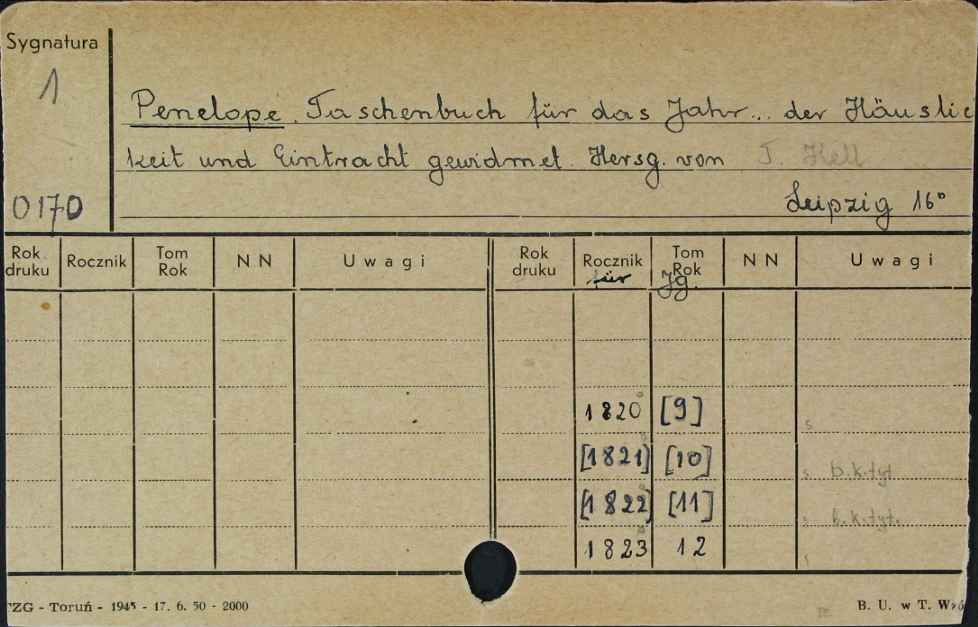 Sygnatura
1
Penelope. Taschenbuch für das Jahr... der Häuslic
keit und Eintracht gewidmet. Hersg. von T. Hell
0170
Leipzig 16°
Rok druku Rocznik Tom Rok N N Uwagi Rok druku Rocznik für Tom Rok Jg. N N Uwagi
1820 [9] s
[1821] [10] s b.k.tyt.
[1822] [11] s b.k.tyt.
1823 12
ZG - Toruń - 1945 - 17. 6. 50 - 2000
B. U. w T.